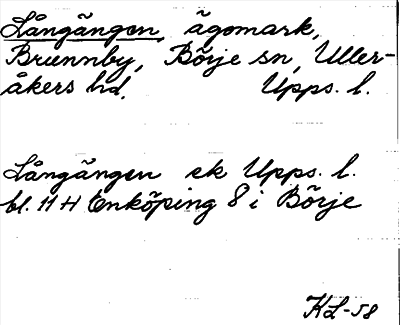 Långängen, ägomark,
Brunnby, Börje sn, Uller-
åkers hd. Upps. l.
Långängen ek Upps. l.
bl. 11 H Enköping 8 i Börje
KL-58